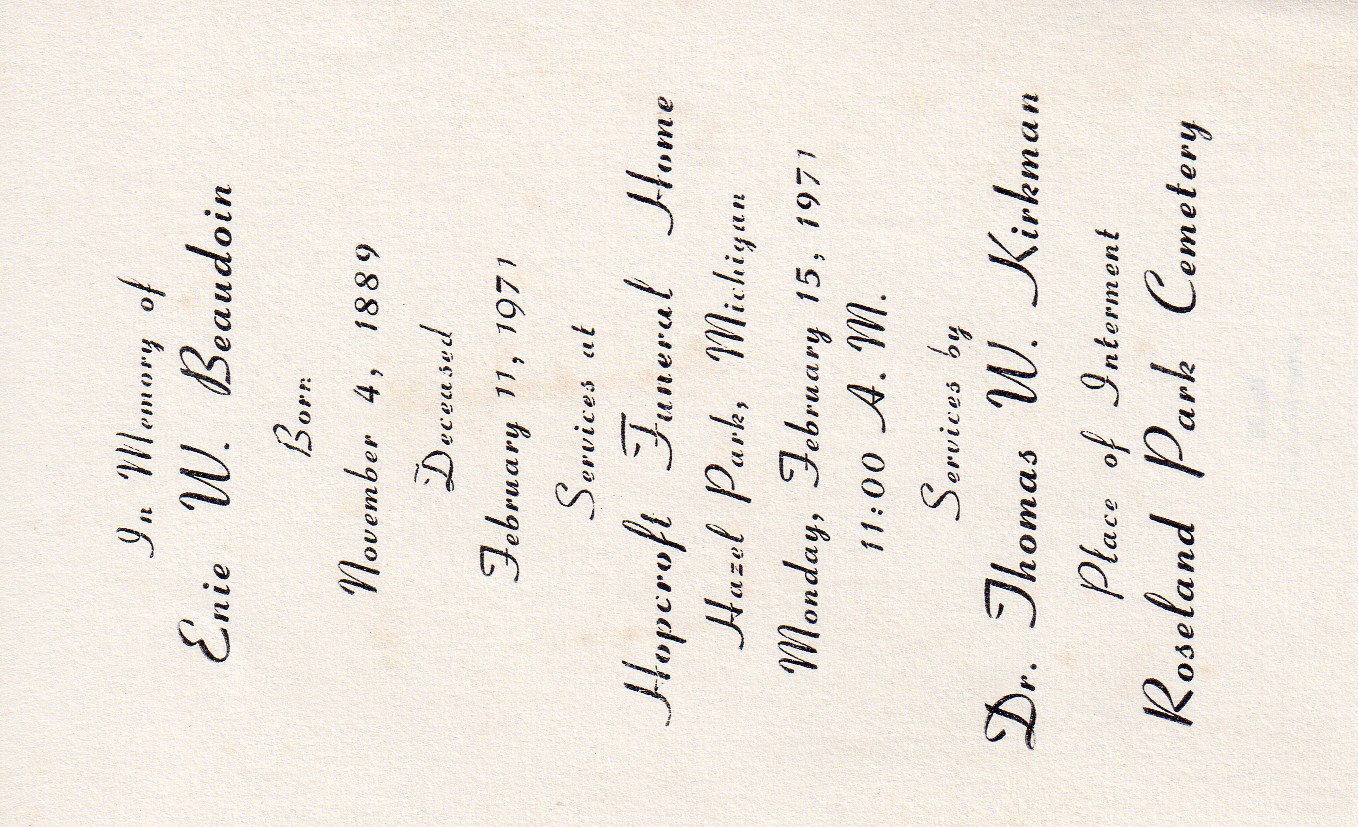 In Memory of
Enie W. Beaudoin
Born
November 4, 1889
Deceased
February 11, 1971
Services at
Hopcroft Funeral Home
Hazel Park, Michigan
Monday, February 15, 1971
11:00 A. M.
Services by
Dr. Thomas W. Kirkman
Place of Interment
Roseland Park Cemetery